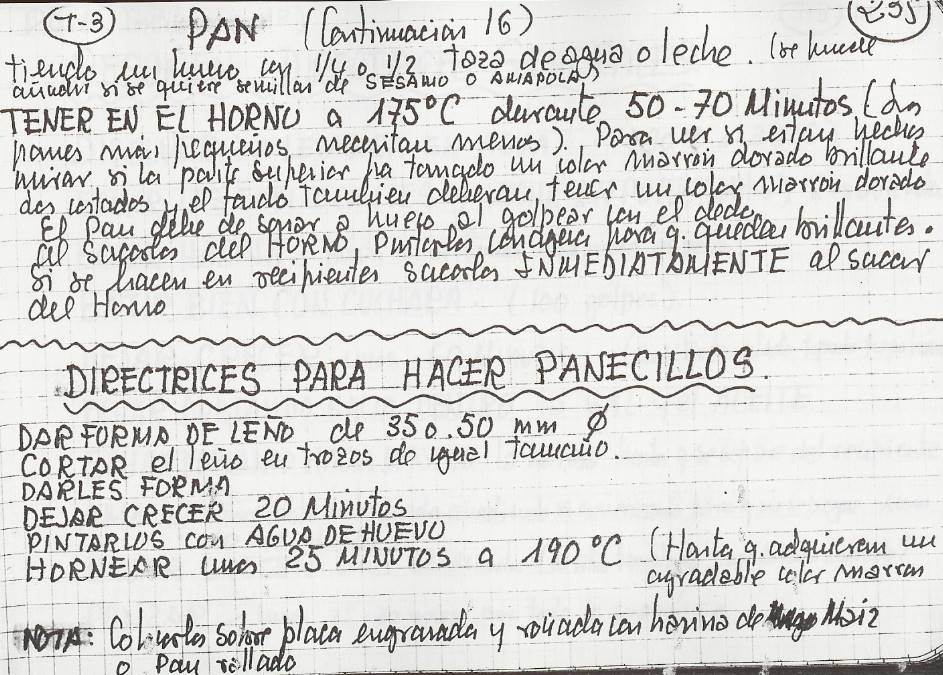 T-3 PAN (Continuación 16) 295
tiendo un huevo con 1/4 o 1/2 taza de agua o leche. (se puede
añadir si se quiere semillas de SESAMO O AMAPOLA)
TENER EN EL HORNO a 175°C durante 50-70 Minutos (Los
panes más pequeños necesitan menos). Para ver si estan hechos
mirar si la parte superior ha tomado un color marrón dorado brillante
los costados y el fondo también deberan tener un color marrón dorado
El Pan debe de sonar a hueco al golpear con el dedo.
Al sacarlos del HORNO, Pintarlos con agua para q. queden brillantes.
Si se hacen en recipientes sacarlos INMEDIATAMENTE al sacar
del Horno
DIRECTRICES PARA HACER PANECILLOS.
DAR FORMA DE LEÑO de 35 o. 50 mm Ø
CORTAR el leño en trozos de igual tamaño.
DARLES FORMA
DEJAR CRECER 20 Minutos
PINTARLOS con AGUA DE HUEVO
HORNEAR unos 25 MINUTOS a 190°C (Hasta q. adquieran un
agradable color marrón
NOTA: Colocarlos sobre placa engrasada y rociada con harina de Maiz
o Pan rallado